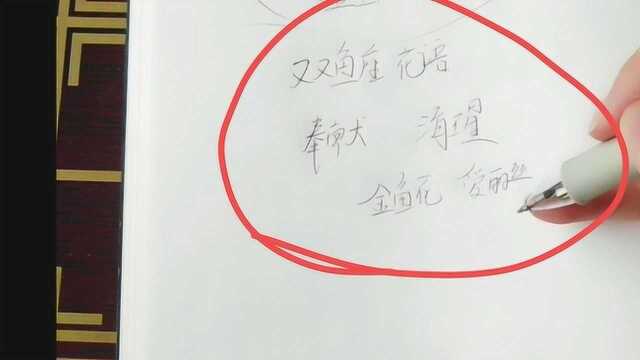 双鱼座 花语
奉献
金鱼花 爱丽丝